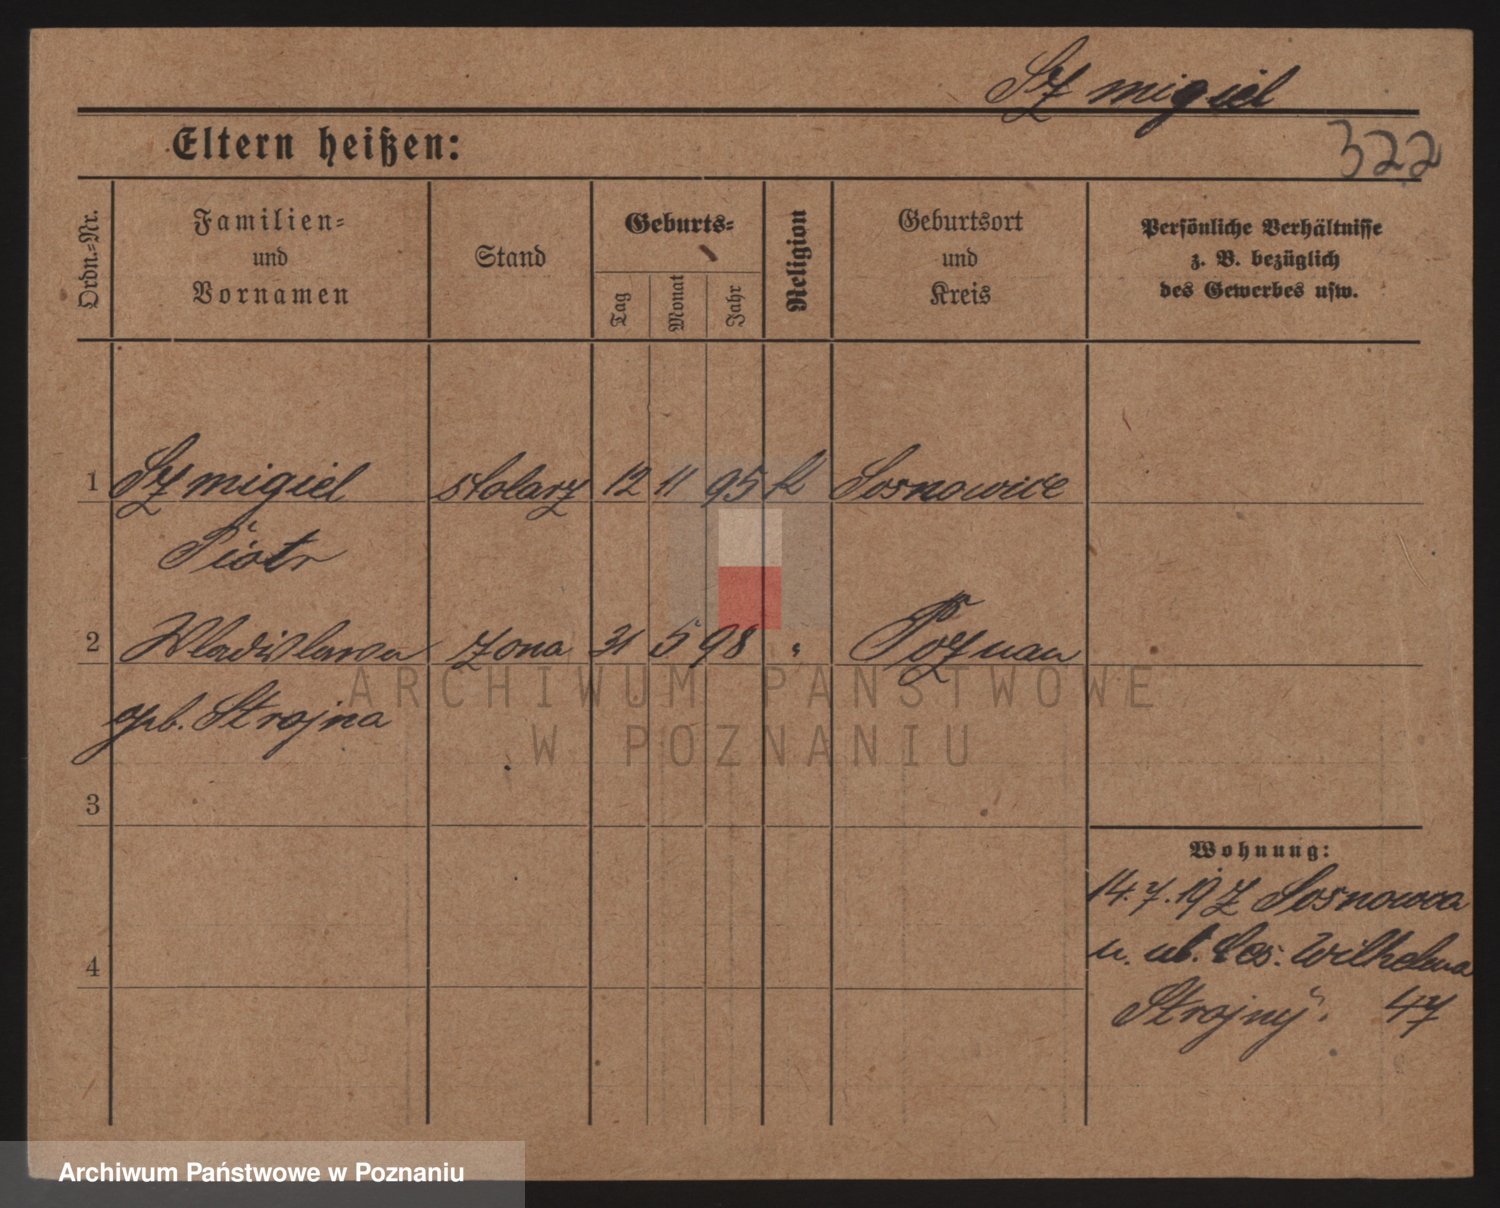 Szmigiel
322
Eltern heißen:
Ordn.-Nr.
Familien- und Vornamen
Stand
Geburts-
Tag
Monat
Jahr
Religion
Geburtsort und Kreis
Persönliche Verhältnisse
z. B. bezüglich
des Gewerbes usw.
1 Szmigiel stolarz 12 11 95 k Sosnowice
Piotr
2 Wladislawa żona 31 5 98 " Poznan
geb. Strojna
ARCHIWUM PAŃSTWOWE
W POZNANIU
3
Wohnung:
14.7.19 Z Sosnowca
u. ub. Wilhelma
4
Strojny. 47
Archiwum Państwowe w Poznaniu